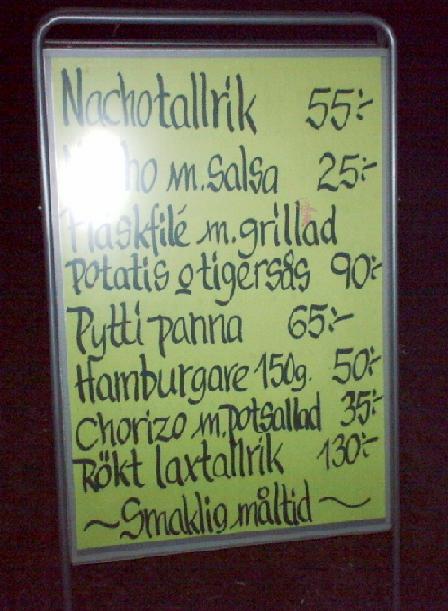 Nachotallrik 55:-
Nacho m. salsa 25:-
Fläskfilé m. grillad
potatis o tigersås 90:-
Pytti panna 65:-
Hamburgare 150g. 50:-
Chorizo m. potsallad 35:-
Rökt laxtallrik 130:-
~ Smaklig måltid ~